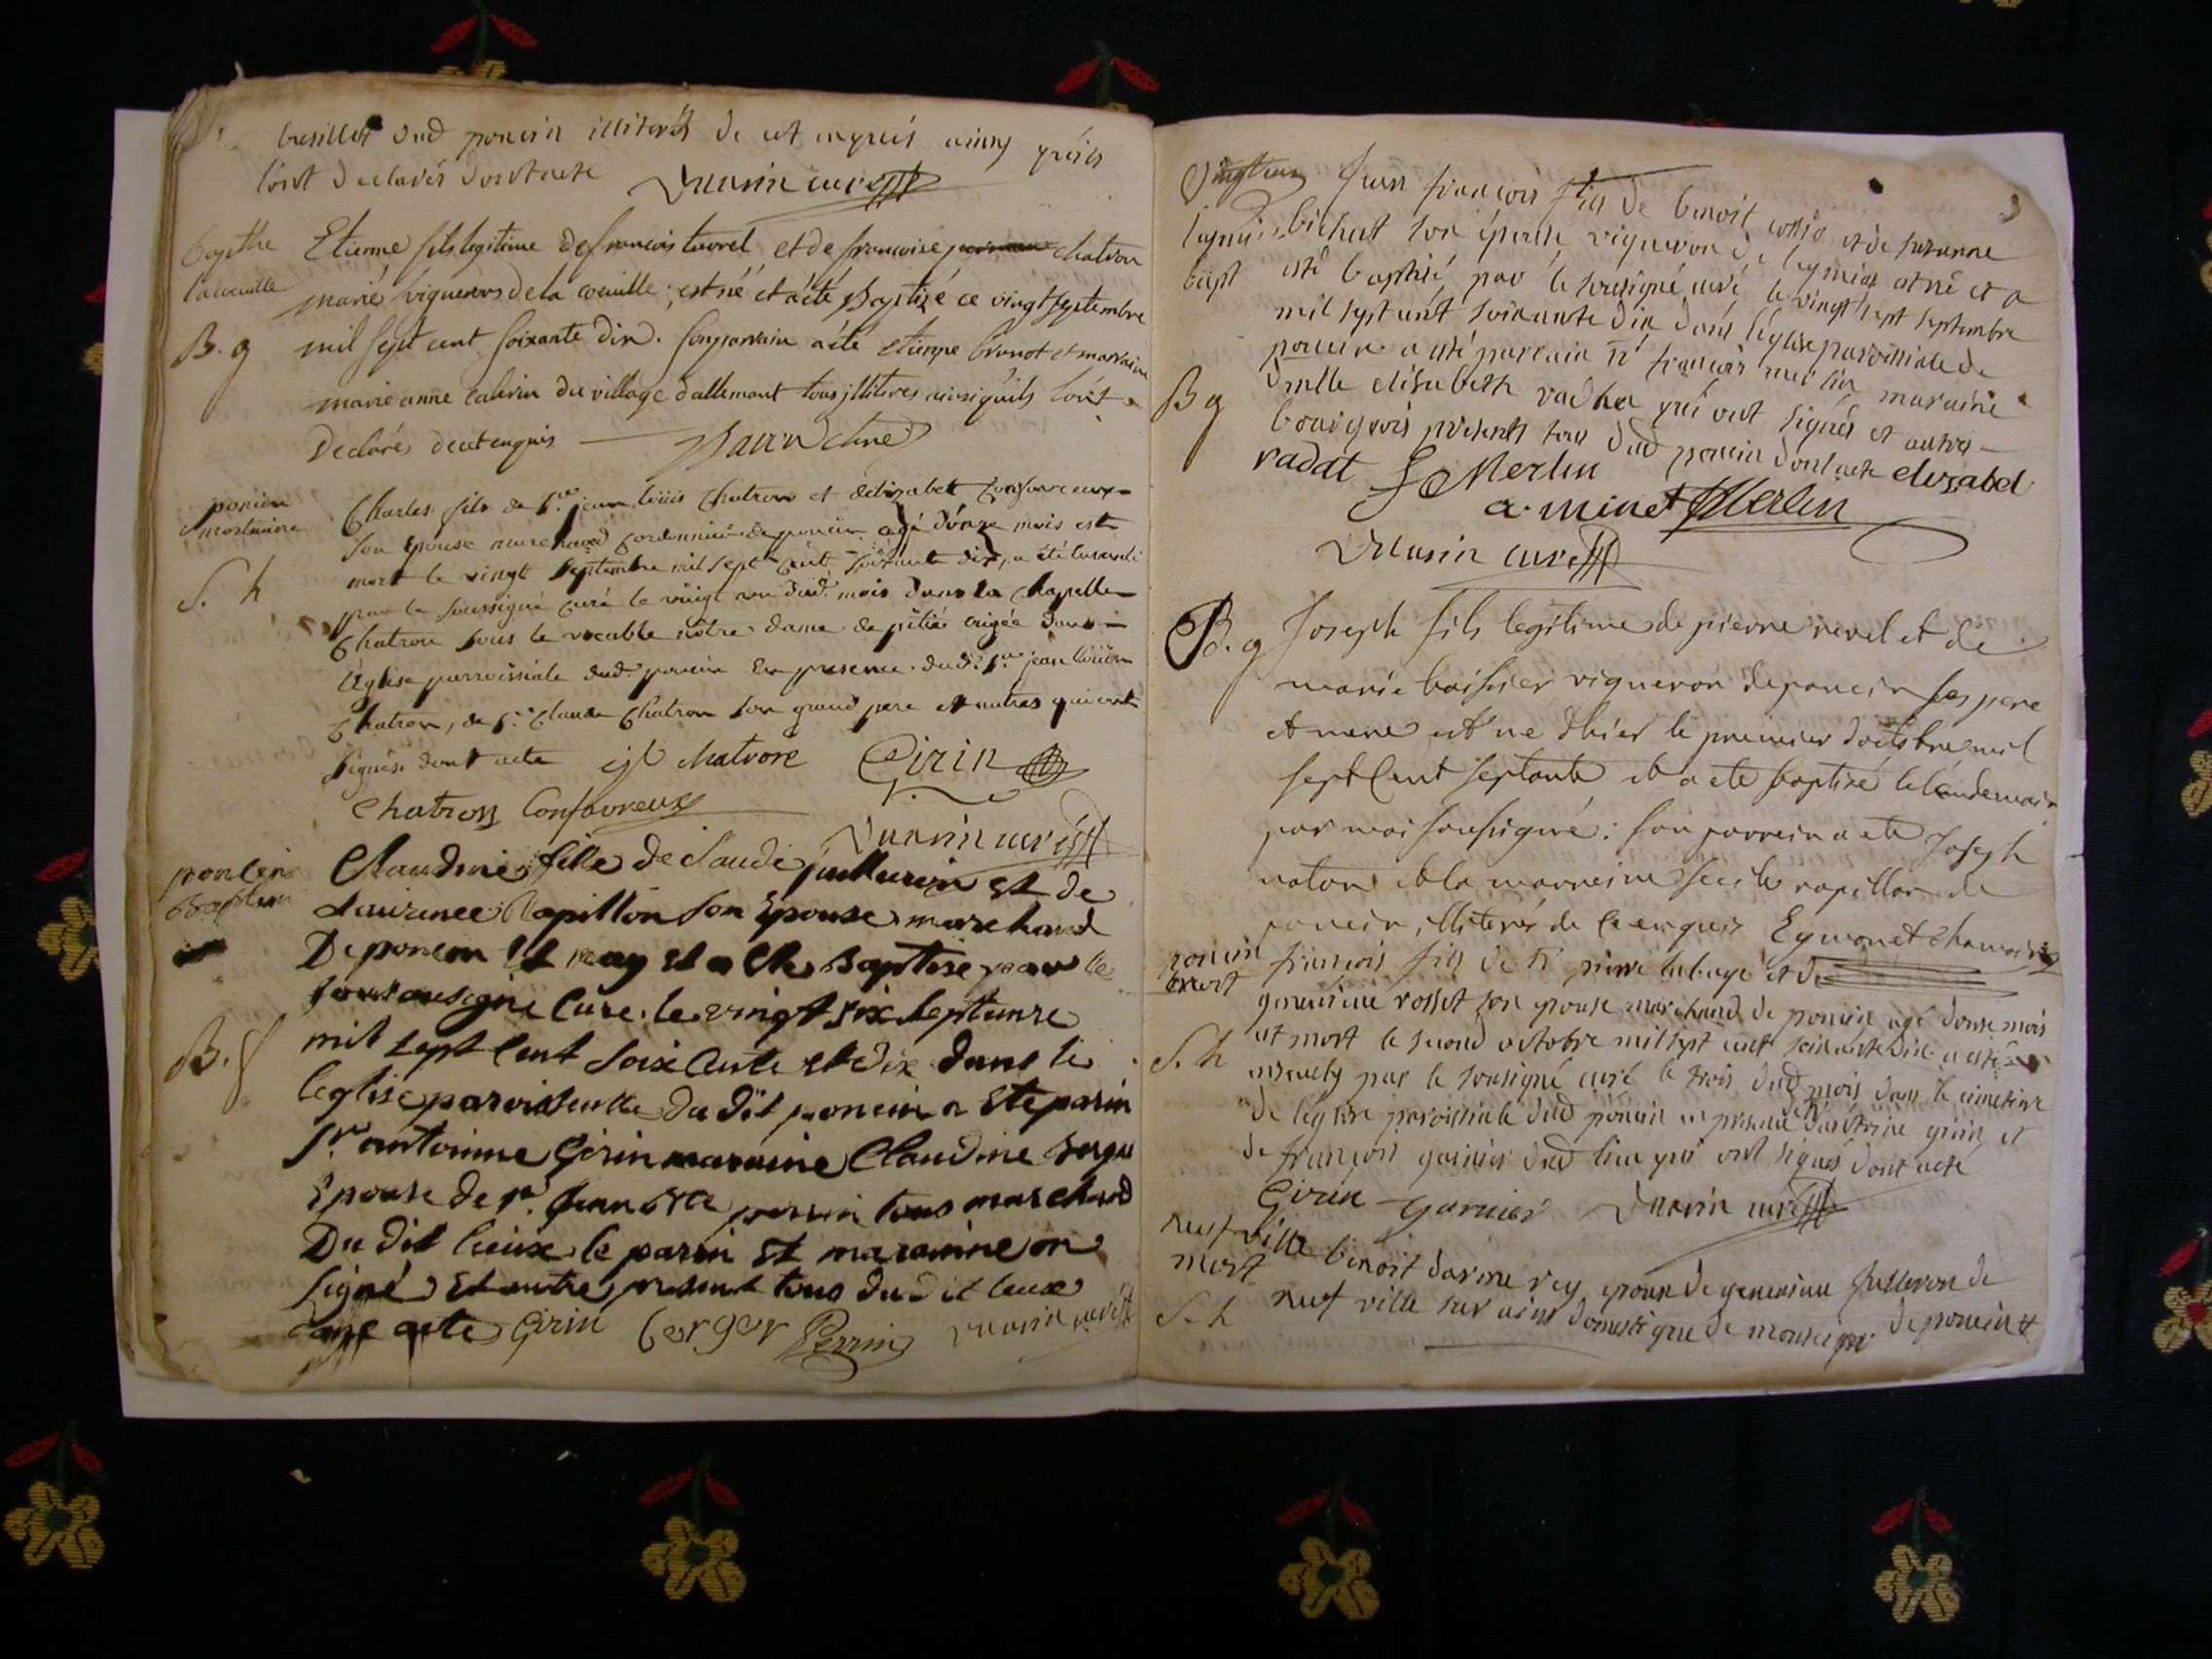 dud poncin illiterés de cet enquis ainsy qu'ils
l'ont declarés dont acte curé
bapthe
la cueille
B. g
Etienne fils legitime de francois tavrel et de francoise chatron
marié vignerons de la cueille, est né et a été Baptizé ce vingt septembre
mil sept cent soixante dix. son parrain a été etienne brunot et marraine
marie anne du village d'allement tous illiteres ainsi quils l'ont
Declarés de cet enquis
poncin
mortuaire
S. h
Charles fils de Sr. jean louis Chatron et d'elizabet Confavreux
son Epouse marchand cordonnier de poncin agé d'onze mois est
mort le vingt Septembre mil sept cent soixante dix, a été enseveli
par le soussigné curé le vingt un dud. mois dans la Chapelle
Chatron sous le vocable nôtre dame de pitié erigée dans
l'église parroissiale dud. poncin En presence dud. Sr. jean louis
Chatron, de Sr. Claude Chatron son grand pere et autres qui ont
signés dont acte chatron Girin
Chatron Confavreux
curé
poncin
Baptem
B. f
Claudine fille de Claude juilleron et de
Laurence Rapillon son Epouse marchand
De poncin Et nay et a Ete Baptise par le
sousigne Cure le vingt six septembre
mil sept Cent soixante et dix dans le
leglise paroissialle du dit poncin a Ete parin
Sr. antoinne Girin maraine Claudine
Epouse de Sr. Jean Bte perrin tous marchand
Du dit lieux le parin Et marainne on
signé Et autre present tous du dit lieux
acte Girin Georger Perrin curé
bapt
B g
Jean francois fils de benoit et de suzanne
bichat son épouse vigneron de est né et a
esté baptisé par le sousigné curé le vingt sept septembre
mil sept cent soixante dix dans l'église paroissiale de
poncin a esté parrain Sr francois merlin maraine
dmlle elisabeth qui ont signés et autres
bourgeois présents tous dud poncin dont acte elizabel
radat Merlin
a. minet Merlin
curé
B. g
Joseph fils legitime de pierre revel et de
marie vigneron de poncin ses pere
et mere est né d'hier le premier d'octobre mil
sept Cent septante et a ete baptizé le lendemain
par moi soussigné : son parrein a ete Joseph
naton et la marreine rapillon de
poncin illiterés de ce enquis Egmonet
poncin
mort
S. h
francois fils de Sr pierre et de
genevieve rosset son epouse marchand de poncin agé d'onze mois
est mort le second octobre mil sept cent soixante dix a esté
ensevely par le sousigné curé le trois dud mois dans le cimetiere
de l'église paroissiale dud poncin en presence d'antoine girin et
de francois garnier dud lieu qui ont signés dont acte
Girin garnier curé
neuf ville
mort
S. h
benoit epoux de genevieve juilleron de
neuf ville sur ains domestique de de poncin et